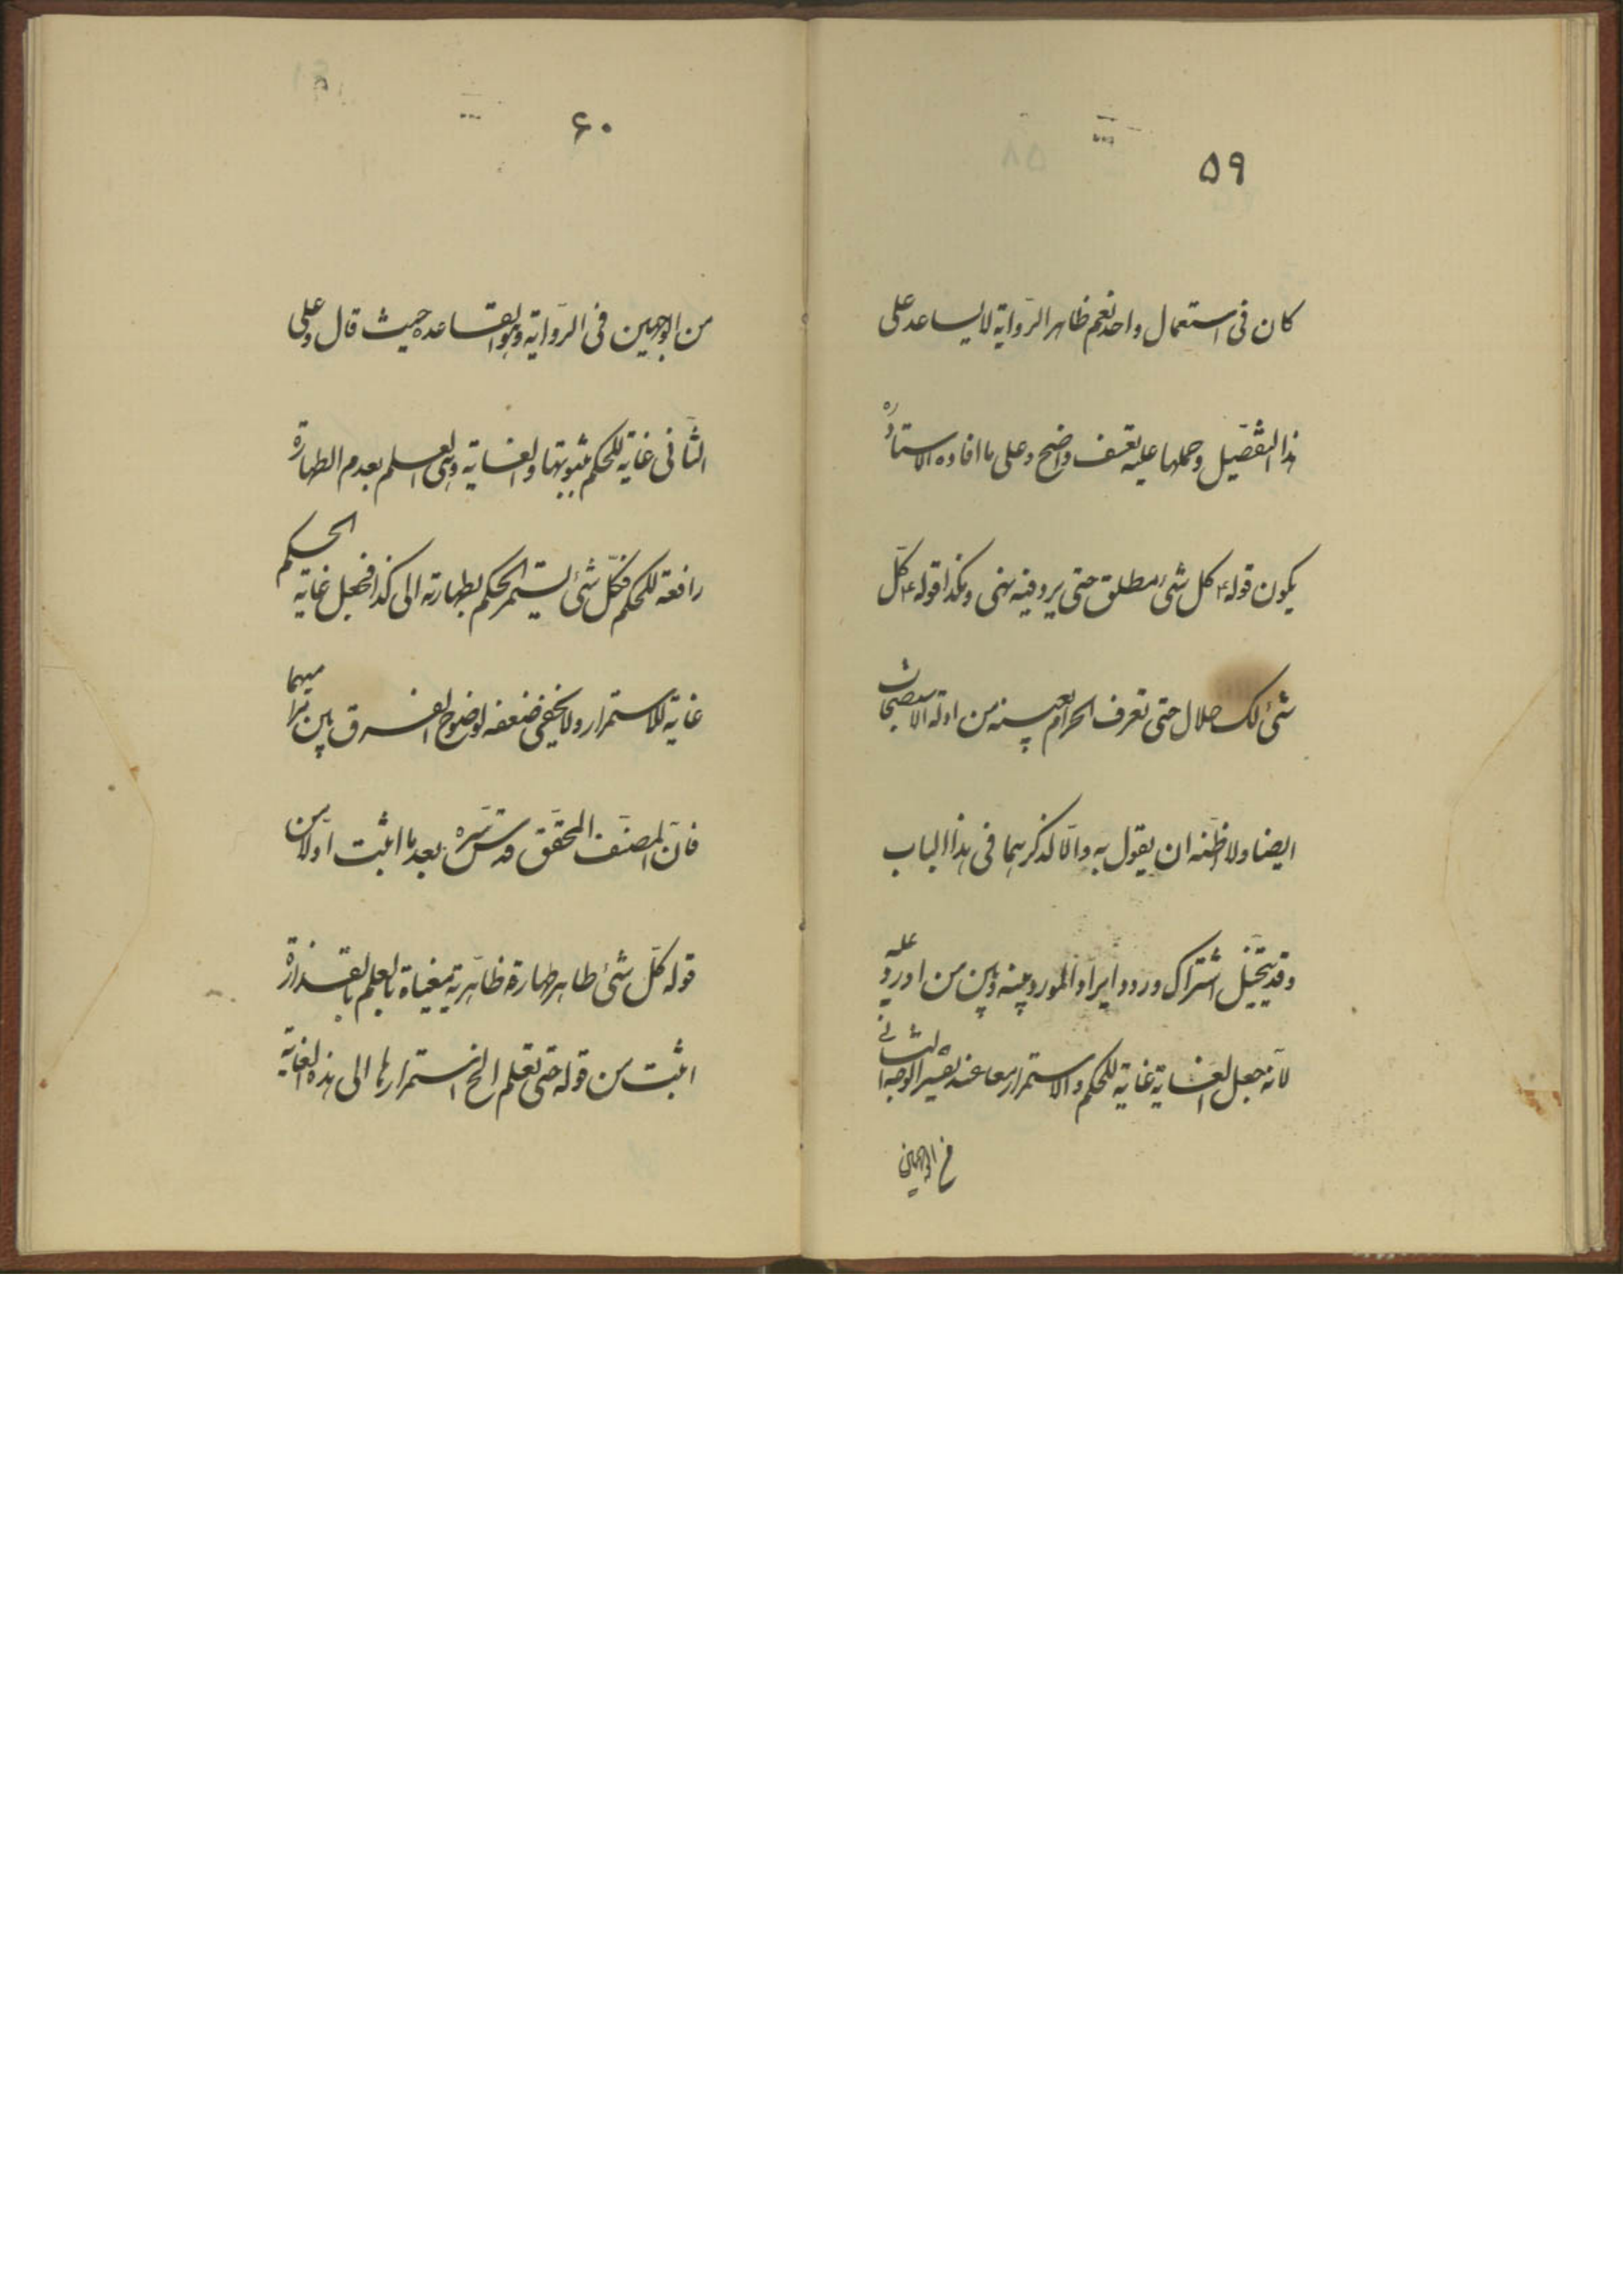 ۵۹
كان فى استعمال واحد نعم ظاهر الرّواية لا يساعد على
هذا التفصيل وحملها عليه تعسف واضح وعلى ما افاده الاستاد ره
يكون قوله ع كل شئ مطلق حتى يرد فيه نهى وهكذا قوله ع كلّ
شئ لك حلال حتى تعرف الحرام بعينه من ادلة الاستصحاب
ايضا ولا اظنّه ان يقول به والّا لذكرهما فى هذا الباب
وقد يتخيّل اشتراك ورود ايراد المورد بينه وبين من اورد عليه
لانّه جعل الغاية غاية للحكم والاستمرار معا عند تفسير الوجه الثانى
من الوجهين
۶۰
من الوجهين فى الرّواية وهو القاعده حيث قال وعلى
الثّانى غاية للحكم بثبوتها والغاية وهى العلم بعدم الطهارة
رافعة للحكم فكلّ شئ يستمر الحكم بطهارته الى كذا فجعل غاية الحكم
غاية للاستمرار ولا يخفى ضعفه لوضوح الفرق بين مراميهما
فانّ المصنّف المحقّق قدّس سرّه بعد ما اثبت اوّلا من
قوله كلّ شئ طاهر طهارة ظاهرية مغياة بالعلم بالقذارة
اثبت من قوله حتى تعلم الخ استمرارها الى هذه الغاية